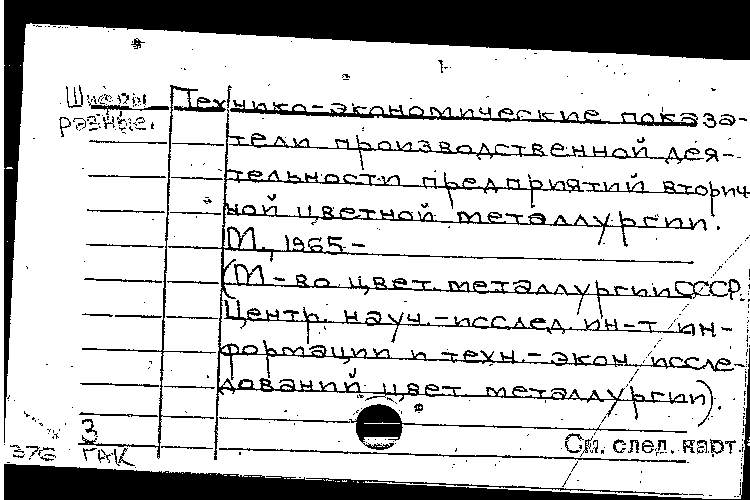 Шифры
разные.
Технико-экономические показа-
тели производственной дея-
тельности предприятий вторич
ной цветной металлургии.
М., 1965-
(М-во цвет. металлургии СССР.
Центр. науч.-исслед. ин-т ин-
формации и техн.-экон. иссле-
дований цвет. металлургии).
З
376 ГАК
См. след. карт.